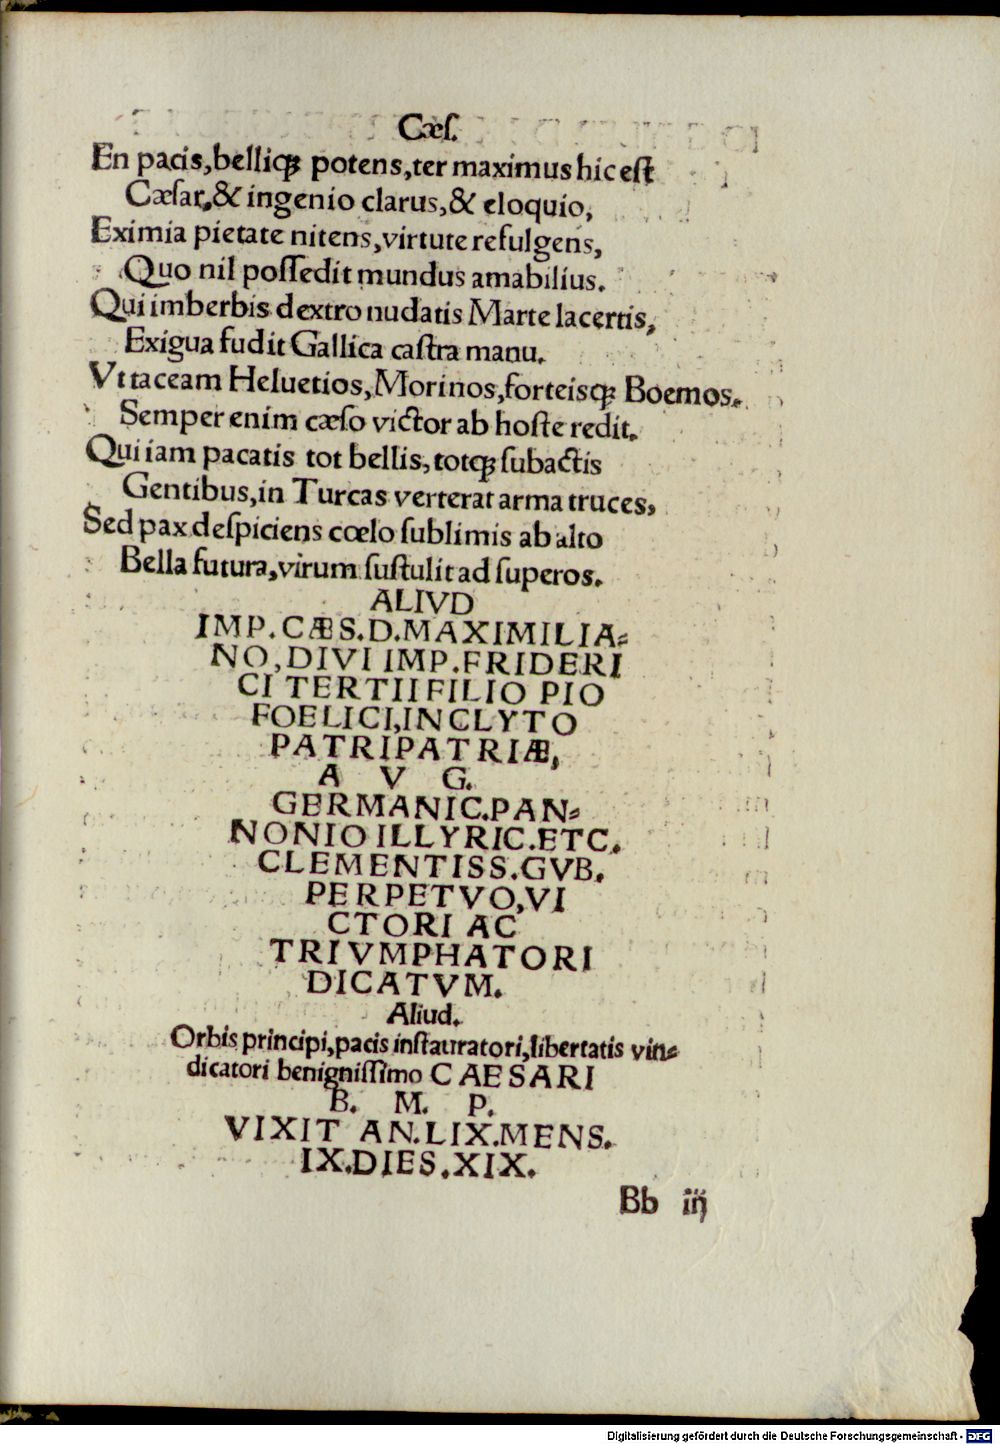 Cæſ.
En pacis,bellicꝫ potens,ter maximus hic eſt
Cæſar,& ingenio clarus,& eloquio,
Eximia pietate nitens,virtute refulgens,
Quo nil poſſedit mundus amabilius.
Qui imberbis dextro nudatis Marte lacertis,
Exigua fudit Gallica caſtra manu.
Vt taceam Heluetios,Morinos,forteisqꝫ Boemos.
Semper enim cæſo victor ab hoſte redit.
Qui iam pacatis tot bellis,totqꝫ ſubactis
Gentibus,in Turcas verterat arma truces,
Sed pax deſpiciens cœlo ſublimis ab alto
Bella futura,virum ſuſtulit ad ſuperos.
ALIVD
IMP.CÆS.D.MAXIMILIA⸗
NO,DIVI IMP.FRIDERI
CI TERTII FILIO PIO
FOELICI,INCLYTO
PATRI PATRIÆ,
A V G.
GERMANIC.PAN⸗
NONIO ILLYRIC.ETC.
CLEMENTISS.GVB.
PERPETVO,VI
CTORI AC
TRIVMPHATORI
DICATVM.
Aliud.
Orbis principi,pacis inſtauratori,libertatis vin⸗
dicatori benigniſſimo CAESARI
B. M. P.
VIXIT AN.LIX.MENS.
IX.DIES.XIX.
Bb iij
Digitalisierung gefördert durch die Deutsche Forschungsgemeinschaft - DFG